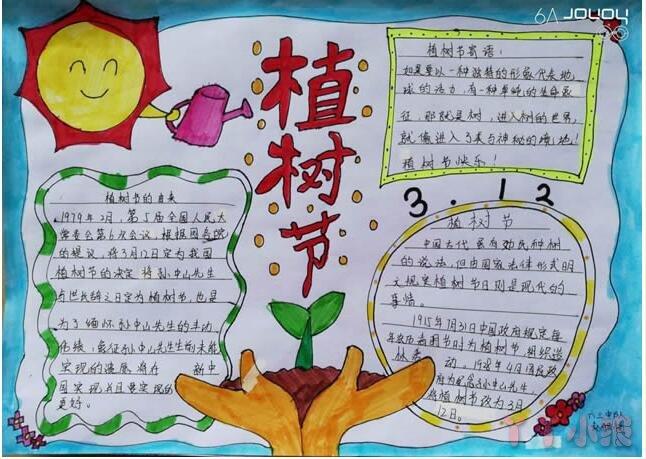 植树节
植树节寄语:
如果要以一种独特的形象代表地
球的活力,有一种单纯的生命象
征,那就是树,进入树的世界,
就像进入了美与神秘的境地!
植树节快乐!
3.12
植树节的由来
1979年2月,第5届全国人民大
常委会第6次会议,根据国务院
的提议,将3月12日定为我国
植树节的决定 将孙中山先生
与世长辞之日定为植树节,也是
为了缅怀孙中山先生的丰功
伟绩,象征孙中山先生生前未能
实现的遗愿将在 新中
国实现并且要实现的
更好。
植树节
中国古代虽有劝民种树
的说法,但由国家法律形式明
文规定植树节日则是现代的
事情。
1915年7月31日中国政府规定每
年农历清明节时为植树节 组织造
林 动。1928年4月国民政
府为纪念孙中山先生,
将植树节改为3月
12日。
丫丫小熊